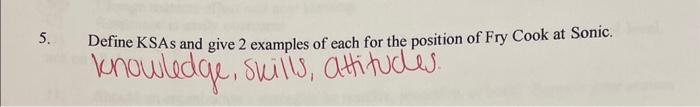 5. Define KSAs and give 2 examples of each for the position of Fry Cook at Sonic.
knowledge, skills, attitudes.